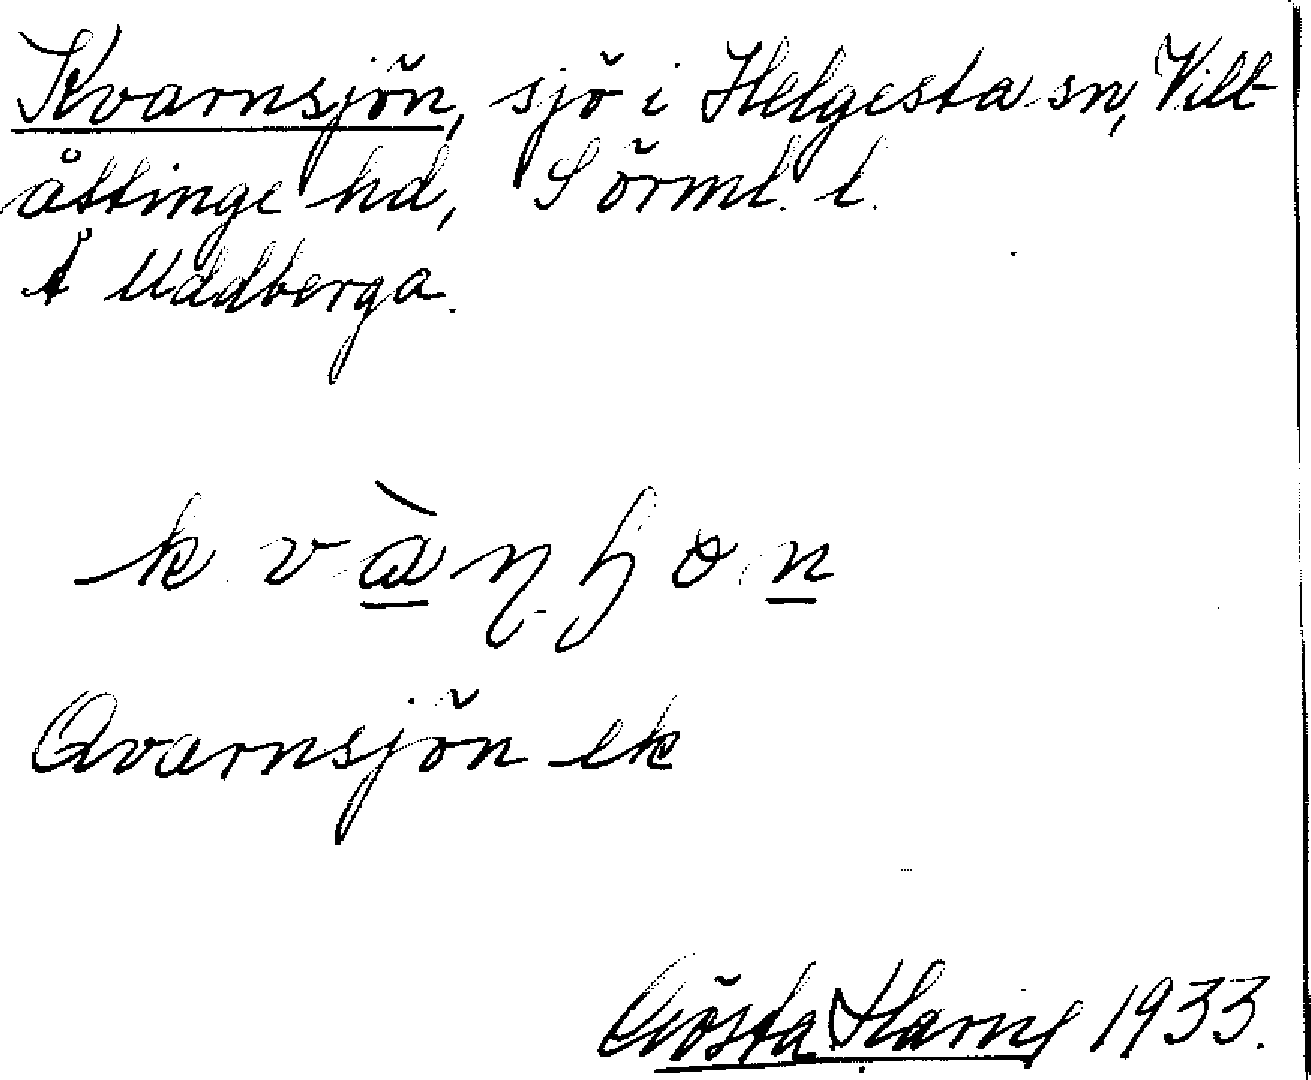 Kvarnsjön, sjö i Helgesta sn, Vilt-
åttinge hd, Sörml. l.
Å Uddberga.
kvàɳɧon
Qvarnsjön ek
Gösta Haring 1933.